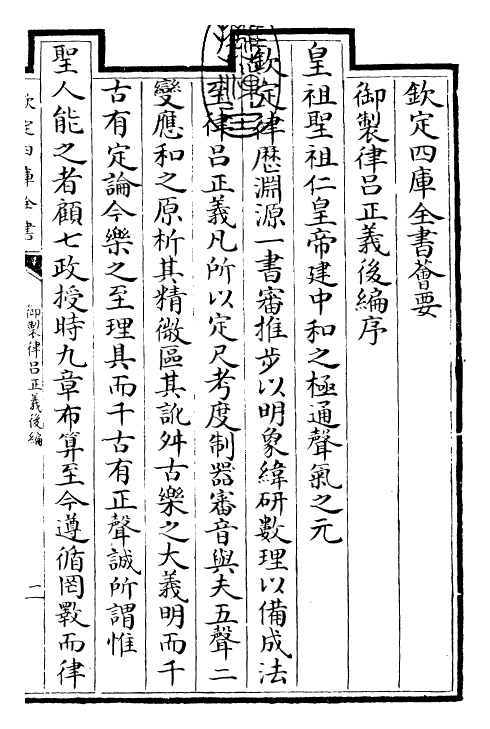 欽定四庫全書薈要
御製律呂正義後編序
皇祖聖祖仁皇帝建中和之極通聲氣之元
欽定律歷淵源一書審推步以明象緯研數理以備成法
至律呂正義凡所以定尺考度制器審音與夫五聲二
變應和之原析其精微區其訛舛古樂之大義明而千
古有定論今樂之至理具而千古有正聲誠所謂惟
聖人能之者顧七政授時九章布算至今遵循罔斁而律
欽定四庫全書
御製律呂正義後編
二